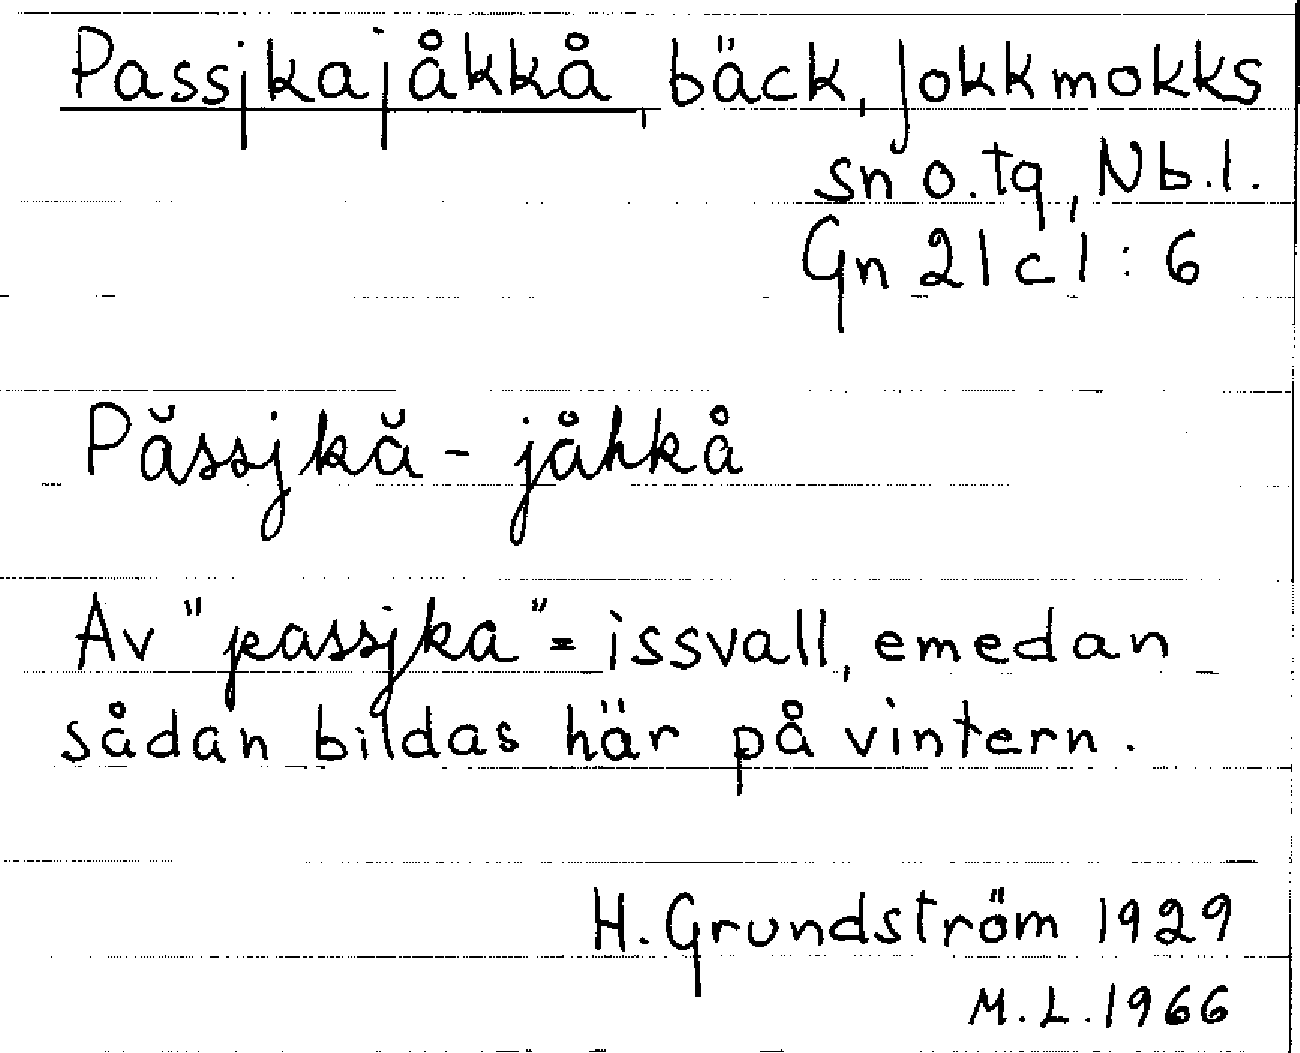 Passjkajåkkå, bäck, Jokkmokks
sn o. tg, Nb. l.
Gn 21 c 1 : 6
Păssjkă - jåhkå
Av "passjka" = issvall, emedan
sådan bildas här på vintern.
H. Grundström 1929
M. L. 1966